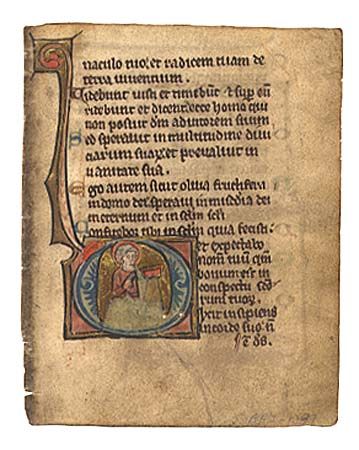 naculo tuo. et radicem tuam de
terra viventium.
Videbunt iusti et timebunt & sup eū
ridebunt et dicent ecce homo qui
non posuit dm adiutorem suum
Sed speravit in multitudine divi
ciarum suarum et prevaluit in
vanitate sua.
Ego autem sicut oliva fructifera
in domo dei speravi in misericordia dei
in eternum et in sclm scli
Confitebor tibi in sclm quia fecisti:
et expectabo
nomen tuum qm
bonum est in
conspectu sctō
rum tuorum.
Dixit insipiens
in corde suo. nō
ē ds.